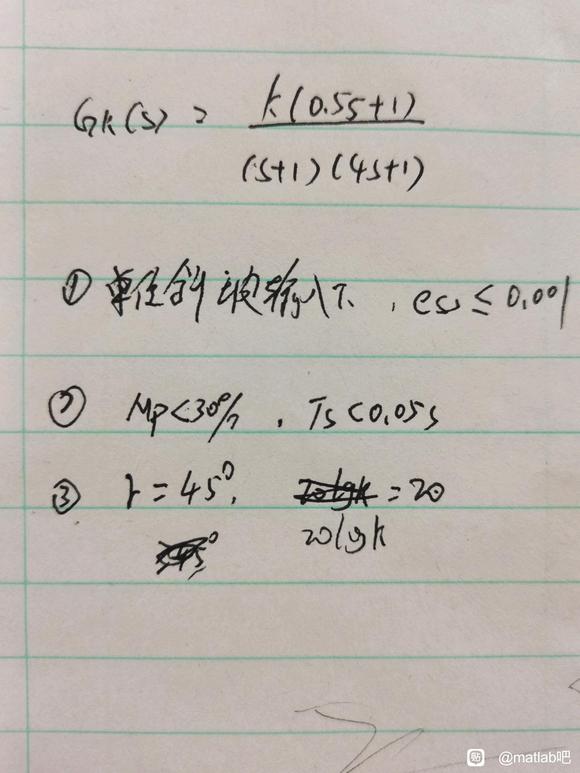 Gk(s) = k(0.5s+1)
(s+1)(4s+1)
① 单位斜坡输入下, ess ≤ 0.001
② Mp<30%, Ts<0.05s
③ r=45°, = 20
20lgk
贴 @matlab吧